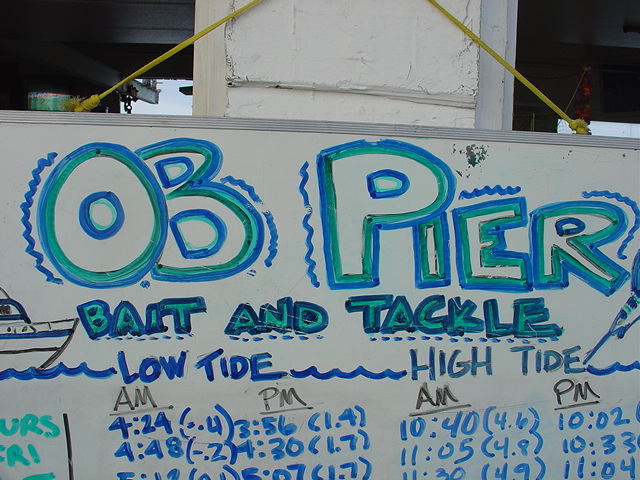 OB PIER
BAIT AND TACKLE
LOW TIDE HIGH TIDE
AM PM AM PM
4:24 (-.4) 3:56 (1.4) 10:40 (4.6) 10:02
URS 4:48 (-.2) 4:30 (1.7) 11:05 (4.8) 10:33
FRI 5:07 (1.7) 11:30 (4.9) 11:04